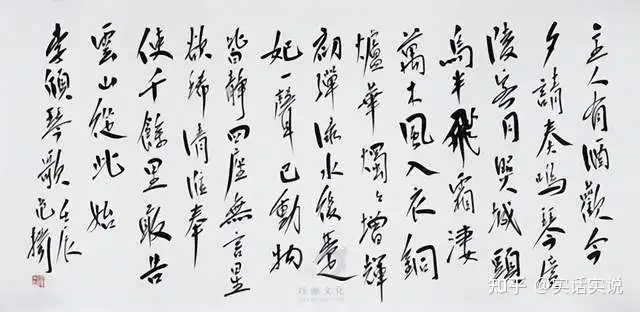 主人有酒歡今
夕請奏鳴琴廣
陵客月照城頭
烏半飛霜淒
萬木風入衣銅
爐華燭々增輝
初彈淥水後楚
妃一聲已動物
皆靜四座無言星
欲稀清淮奉
使千餘里敢告
雲山從此始
李頎琴歌 壬辰
知乎 @实话实说